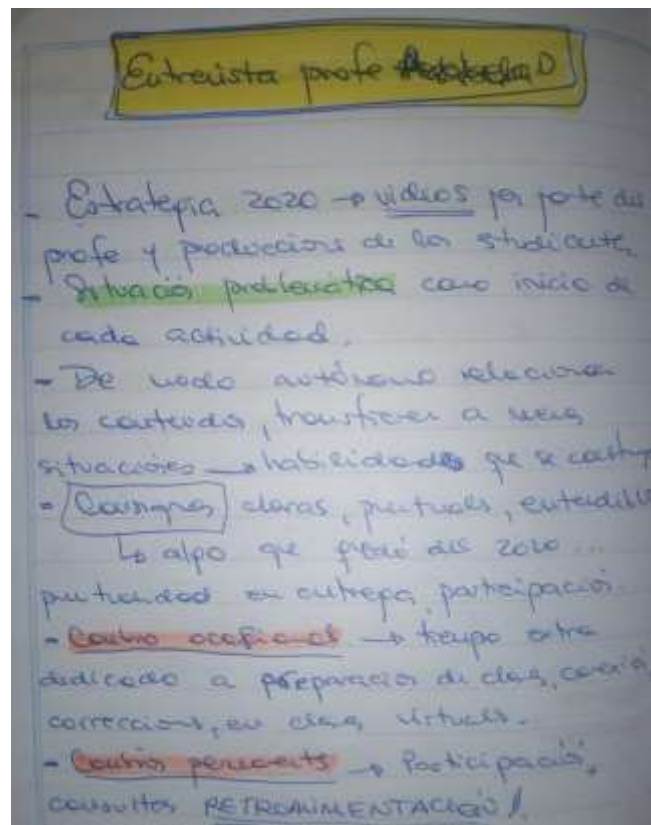 Entrevista profe D
- Estrategia 2020 → videos por parte del
profe y producciones de los studiantes
- Situación problemática como inicio de
cada actividad.
- De modo autónomo relacionan
los contenidos, transfieren a
situaciones → habilidades que se
- Consignas claras, puntuales, entendibles
↳ algo que quedó del 2020 ...
puntualidad en entrega, participación.
- ocasional → tiempo extra
dedicado a preparación de clases,
correcciones, en clases virtuales.
- permanents → Participación,
consultas RETROALIMENTACIÓN!